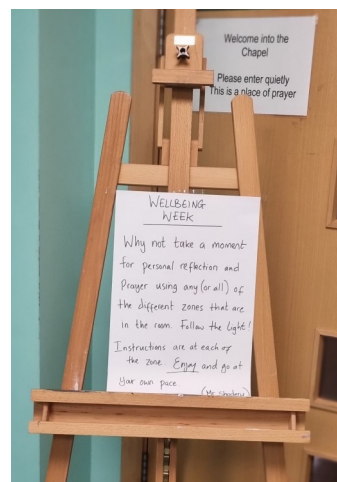 Welcome into the
Chapel
Please enter quietly
This is a place of prayer
WELLBEING
WEEK
Why not take a moment
for personal reflection and
Prayer using any (or all) of
the different zones that are
in the room. Follow the light!
Instructions are at each of
the zone. Enjoy and go at
your own pace.
(Mr